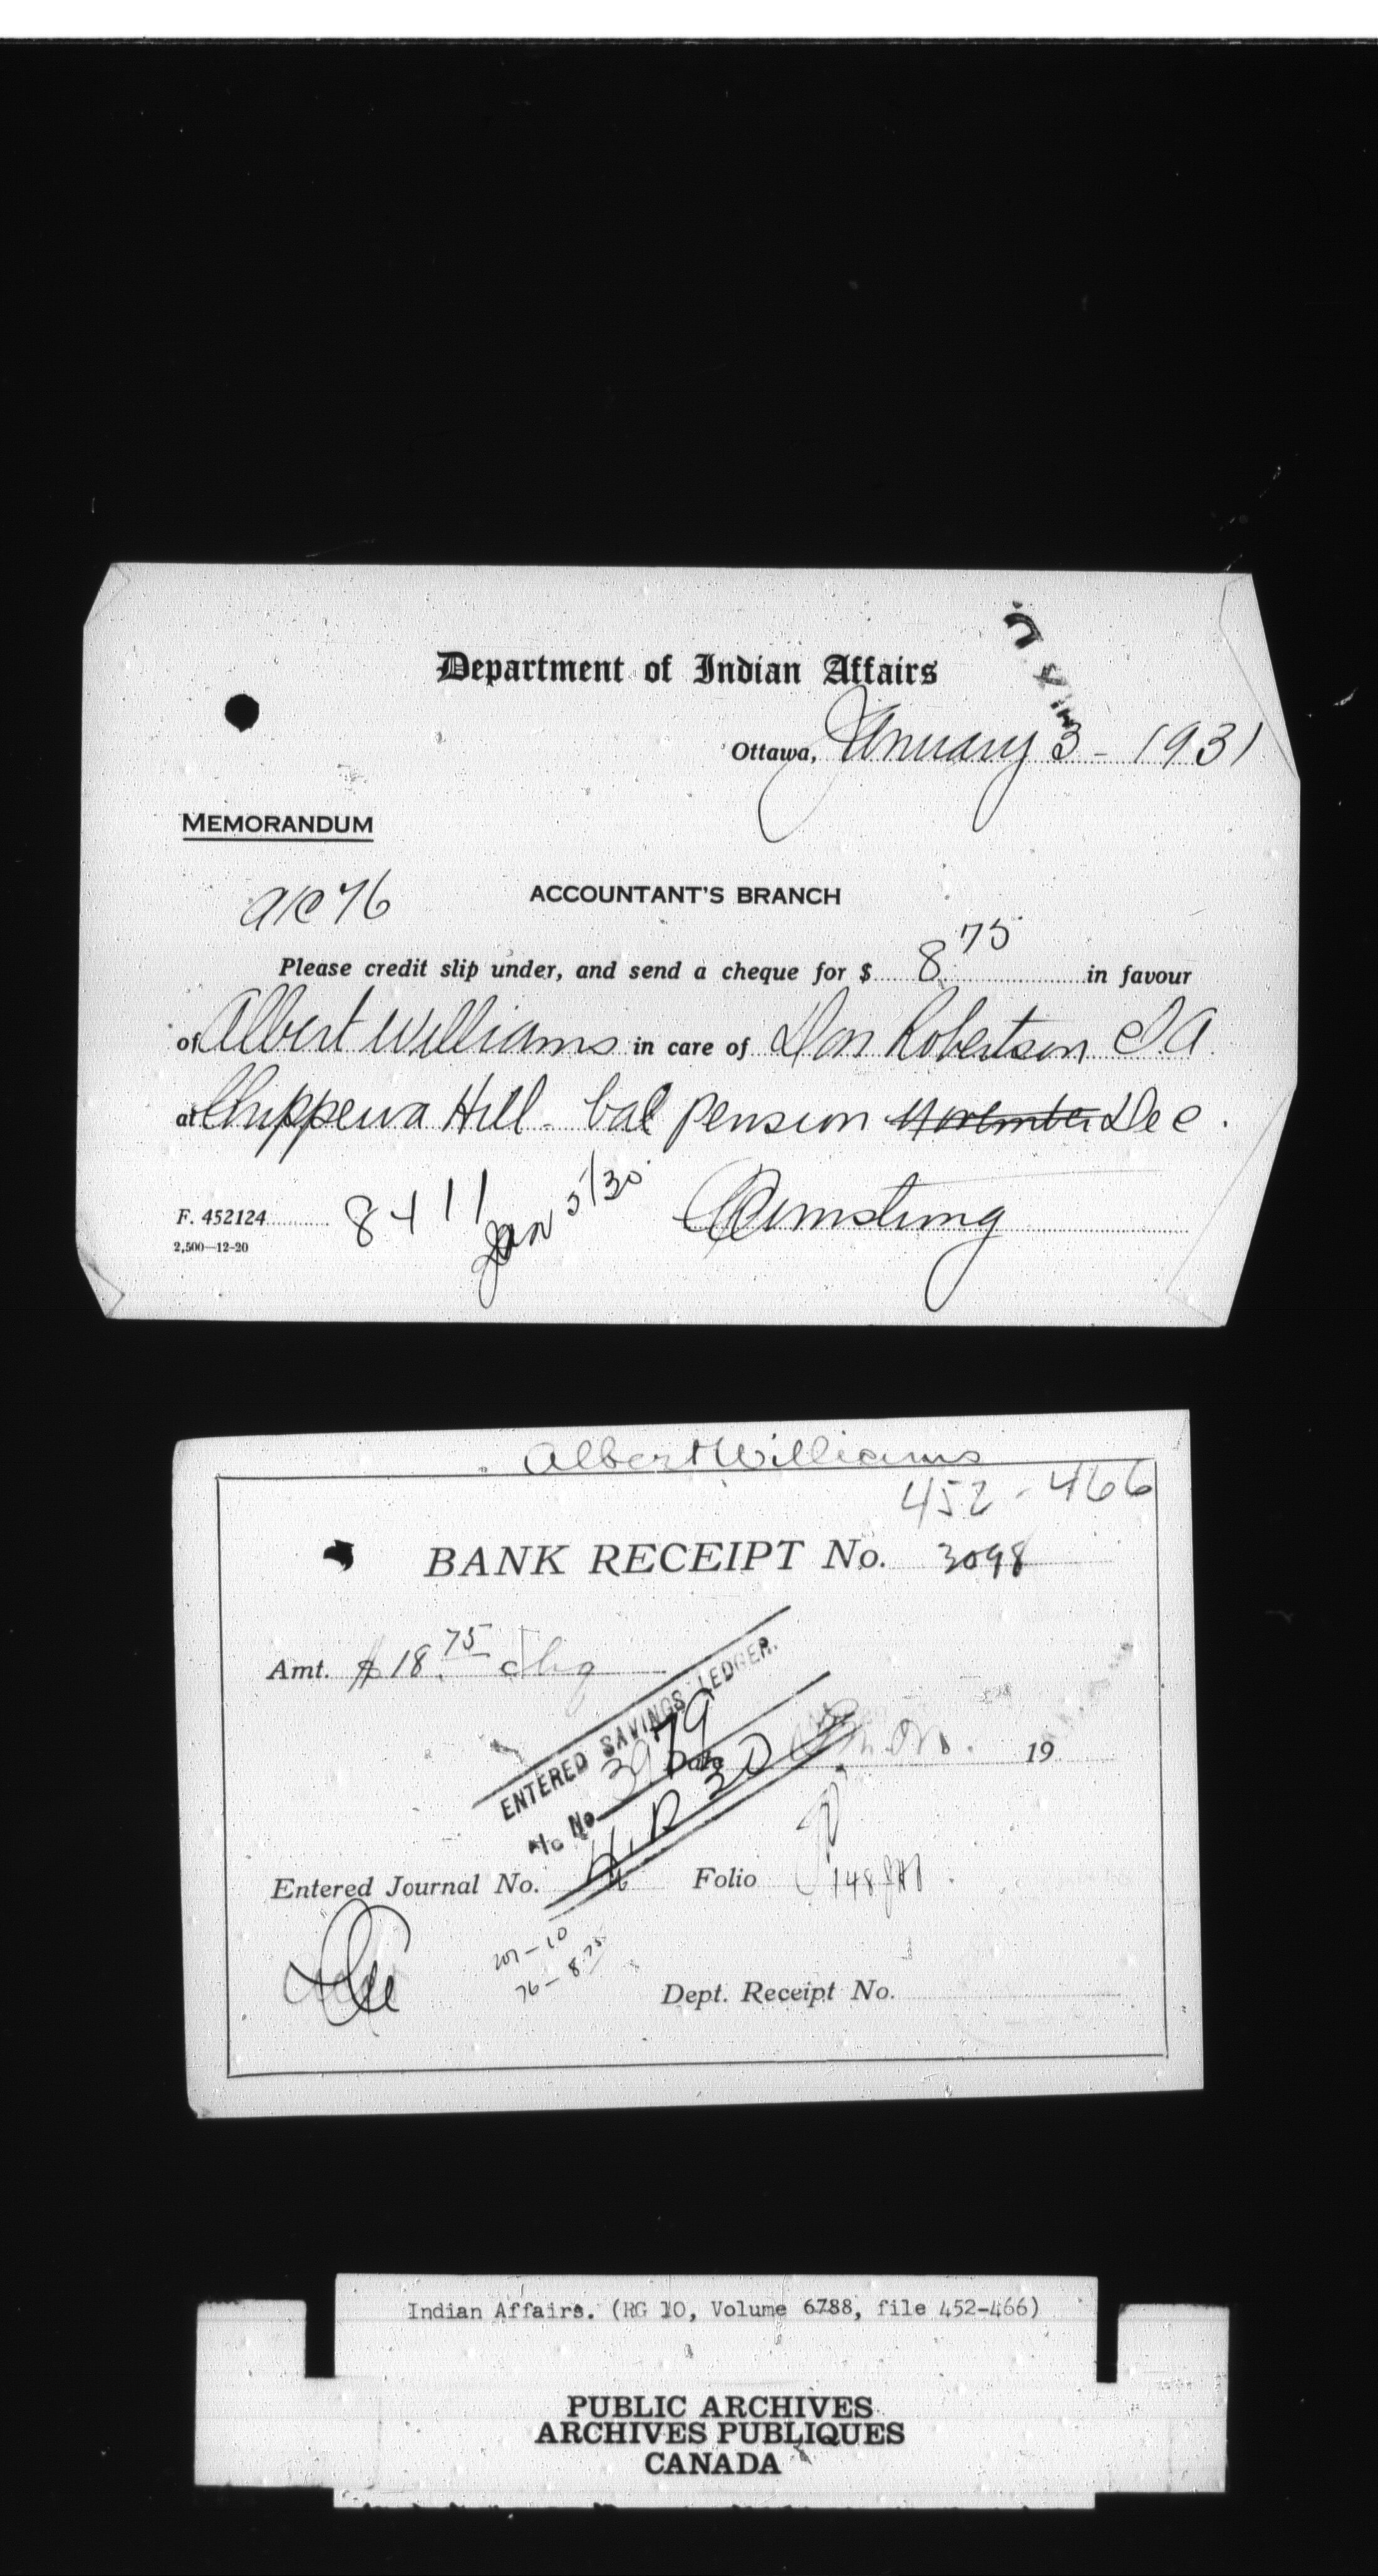 Department of Indian Affairs
Ottawa, January 3 - 1931
MEMORANDUM
a/c 76
ACCOUNTANT'S BRANCH
Please credit slip under, and send a cheque for $ 8.75 in favour
of Albert Williams in care of Don Robertson I.A.
at Chippewa Hill - bal pension November Dec.
F. 452124
8411
Jan 5/30
Armstrong
2,500—12-20
Albert Williams
452-466
BANK RECEIPT No. 3098
Amt. $18.75 chq
ENTERED SAVINGS LEDGER.
A/c No.
Date
19
Entered Journal No.
Folio 148
207-10
76-8.75
Dept. Receipt No.
Indian Affairs. (RG 10, Volume 6788, file 452-466)
PUBLIC ARCHIVES
ARCHIVES PUBLIQUES
CANADA